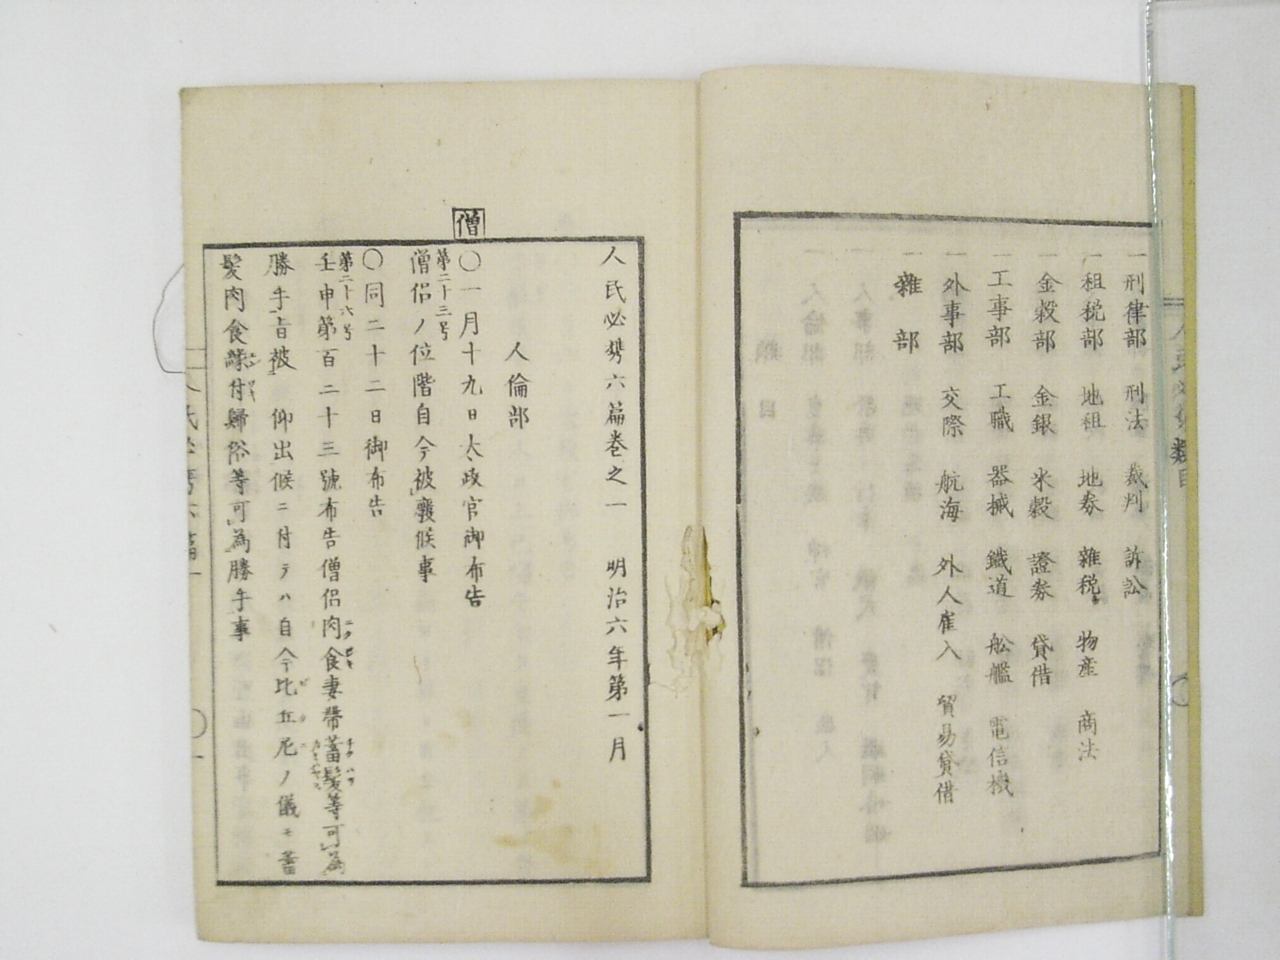 一 刑律部 刑法 裁判 訴訟
一 租税部 地租 地券 雑税 物産 商法
一 金穀部 金銀 米穀 證券 貸借
一 工事部 工職 器械 鐵道 舩艦 電信機
一 外事部 交際 航海 外人雇入 貿易貸借
一 雜部
人民必携六篇巻之一 明治六年第一月
人倫部
僧
〇一月十九日太政官御布告
第二十三号
僧侶ノ位階自今被癈候事
〇同二十二日御布告
第二十六号
壬申第百三十三號布告僧侶肉食妻帯蓄髪等可為
勝手旨被 仰出候ニ付テハ自今比丘尼ノ儀モ蓄
髪肉食縁付歸俗等可為勝手事